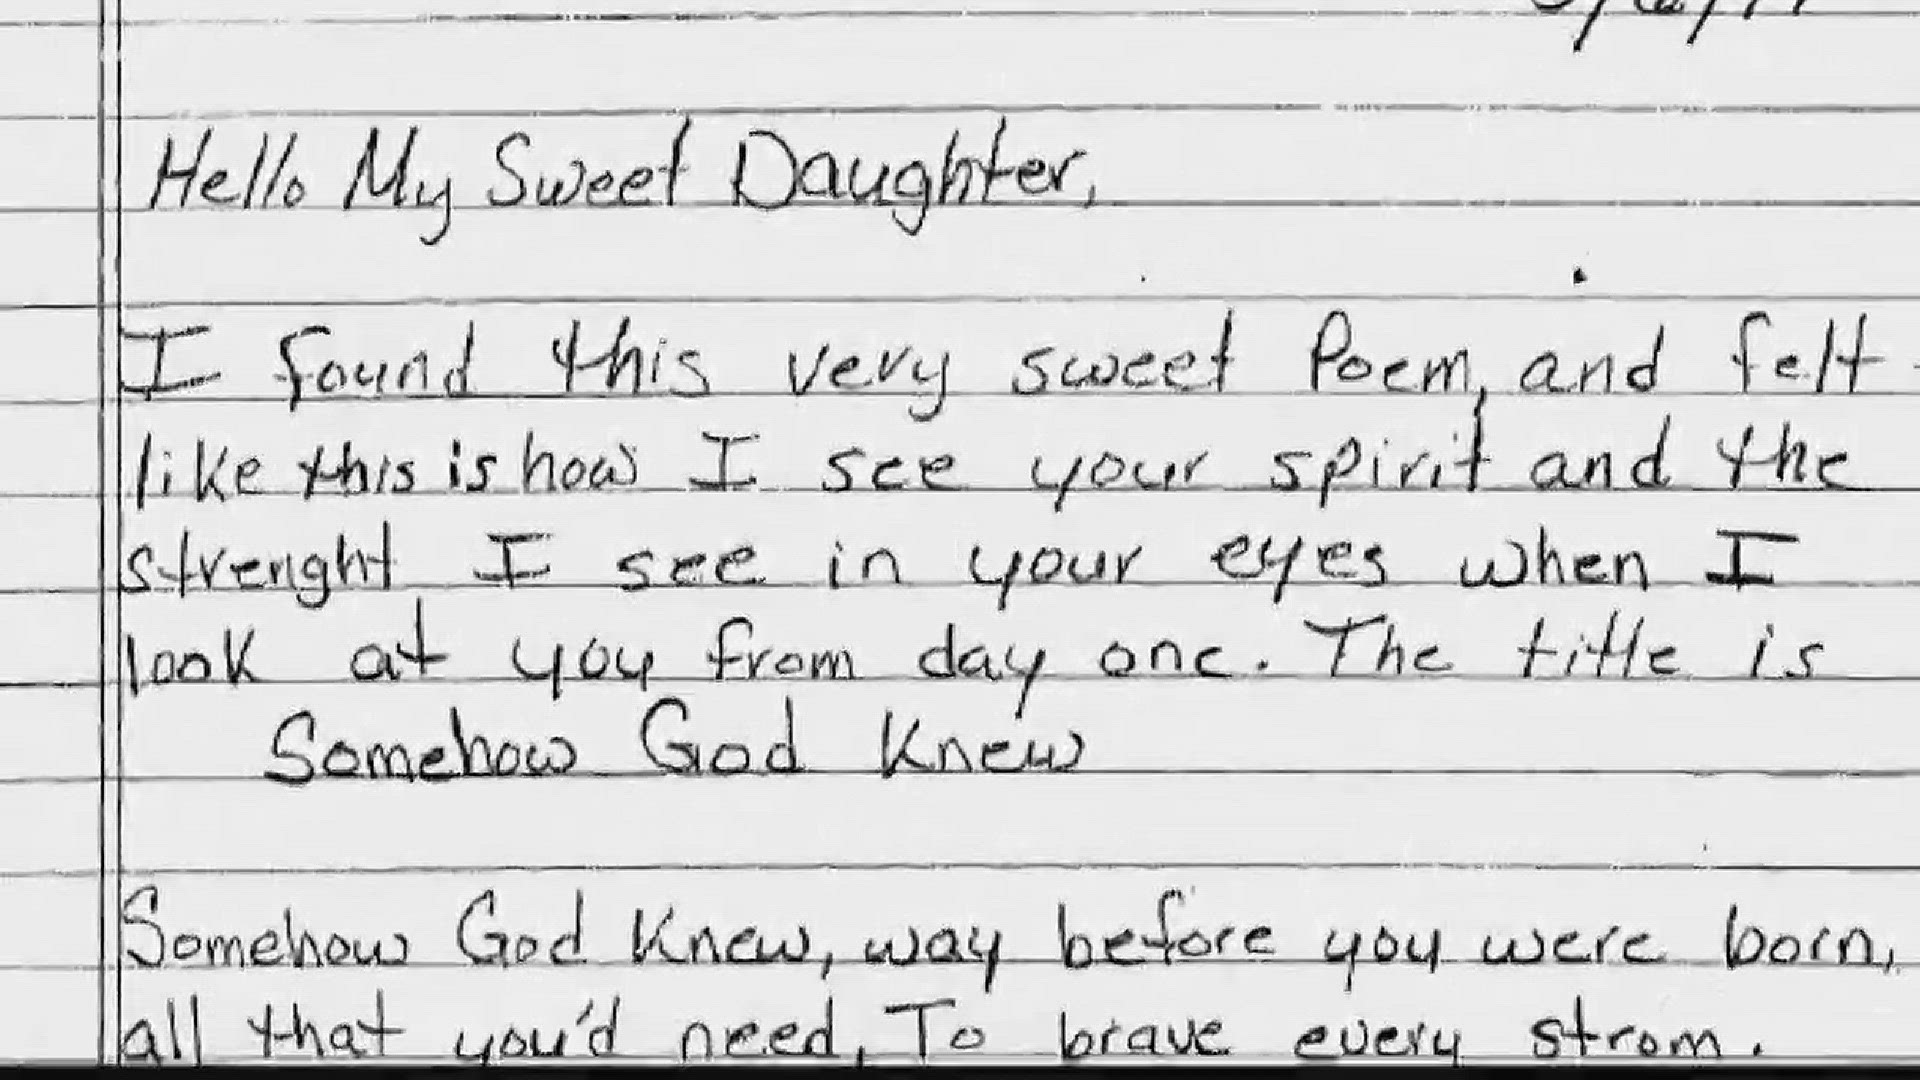 Hello My Sweet Daughter,
I found this very sweet Poem, and felt
like this is how I see your spirit and the
strenght I see in your eyes when I
look at you from day one. The title is
Somehow God Knew
Somehow God Knew, way before you were born,
all that you'd need, To brave every strom.